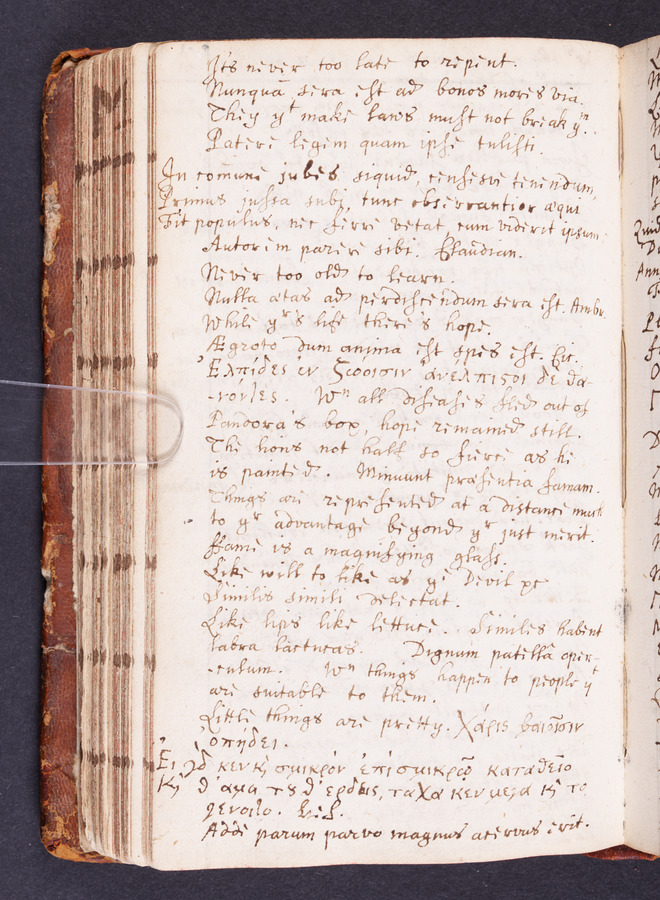 It's never too late to repent.
Nunquā sera est ad bonos mores via.
They yt make laws must not break ym.
Patere legem quam ipse tulisti.
In cōmune jubes siquid, censesve tenendum,
Primus jussa subi, tunc observantior æqui
Fit populus, nec ferre vetat, cum viderit ipsum
Autorem parere sibi. Claudian.
Never too old to learn.
Nulla ætas ad perdiscendum sera est. Ambr.
While yr's life there's hope.
Ægroto dum anima est spes est. Cic.
Ἐλπίδες ἐν ζωοισιν ἀνελπιςοι δὲ θα-
-νόντες. Wn all diseases fled out of
Pandora's box, hope remained still.
The lions not half so fierce as he
is painted. Minuunt præsentia famam.
Things are represented at a distance much
to yr advantage beyond yr just merit.
Fame is a magnifying glass.
Like will to like as ye Devil
Similis simili delectat.
Like lips like lettuce. Similes habent
labra lactucas. Dignum patellâ oper-
-culum. Wn things happen to people yt
are suitable to them.
Little things are pretty. Χάρις βαιοῖσιν
ὀπηδεῖ.
Ει γδ κεν κ̀ σμικρὸν ἐπὶ σμικρῷ καταθεῖο
κ̀ θ' ἁμα τȣ̃θ' ἐρδεις, ταχα κεν μεγα κ̀ το
γενοιτο. Hes.
Adde parum parvo magnus acervus erit.